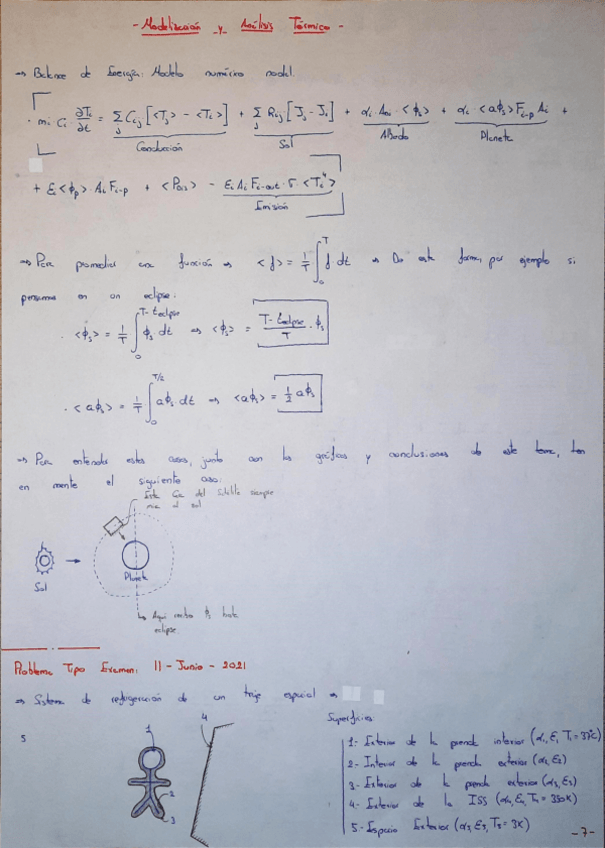 - Modelización y Análisis Térmico -
⇒ Balance de Energía: Modelo numérico nodal.
· mi Ci ∂Ti/∂t = Σj Cij [<Tj> - <Ti>] + Σj Rij [Jj - Ji] + αi · Aoi · <ϕs> + αi · <aϕs> Fi-p Ai +
Conducción Sol Albedo Planeta
+ Ei <ϕp> · Ai Fi-p + <Pdis> - Ei Ai Fi-out · σ · <Ti⁴>
Emisión
⇒ Para promediar una función ⇒ <f> = 1/T ∫₀ᵀ f dt ⇒ De esta forma, por ejemplo si
pensamos en un eclipse:
· <ϕs> = 1/T ∫₀^(T - teclipse) ϕs dt ⇒ <ϕs> = (T - teclipse)/T · ϕs
· <aϕs> = 1/T ∫₀^(T/2) aϕs dt ⇒ <aϕs> = 1/2 aϕs
⇒ Para entender estos casos, junto con las gráficas y conclusiones de este tema, ten
en mente el siguiente caso:
Esta Cara del Satélite siempre
mira al sol
Sol
Planeta
↳ Aquí recibo ϕs hasta
eclipse
Problema Tipo Examen: 11 - Junio - 2021
⇒ Sistema de refrigeración de un traje espacial ⇒
Superficies:
5
1
4
2
3
1- Exterior de la prenda interior (α1, E1, T1 = 37ºC)
2- Interior de la prenda exterior (α2, E2)
3- Exterior de la prenda exterior (α3, E3)
4- Exterior de la ISS (α4, E4, T4 = 350K)
5- Espacio Exterior (α5, E5, T5 = 3K)
-7-